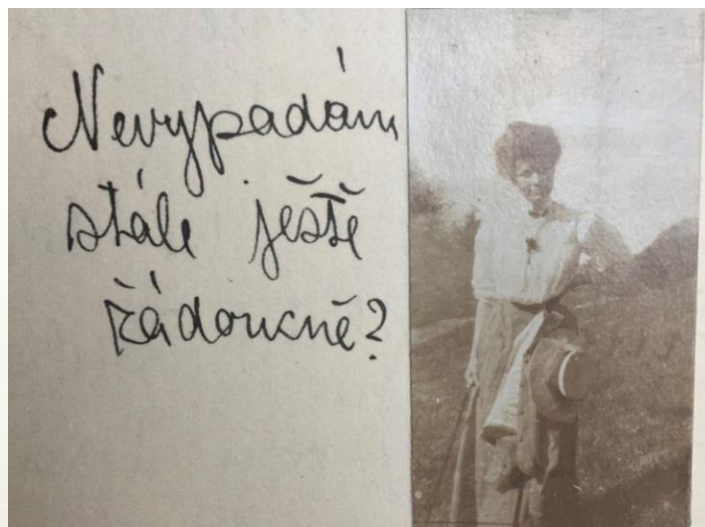 Nevypadám
stále ještě
žádoucně?